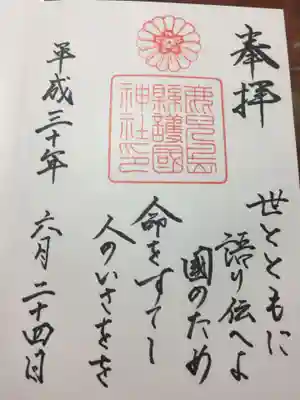 奉拝
鹿兒島
縣護國
神社印
世とともに
語り伝へよ
國のため
命をすてし
人のいさをを
平成三十年 六月二十四日